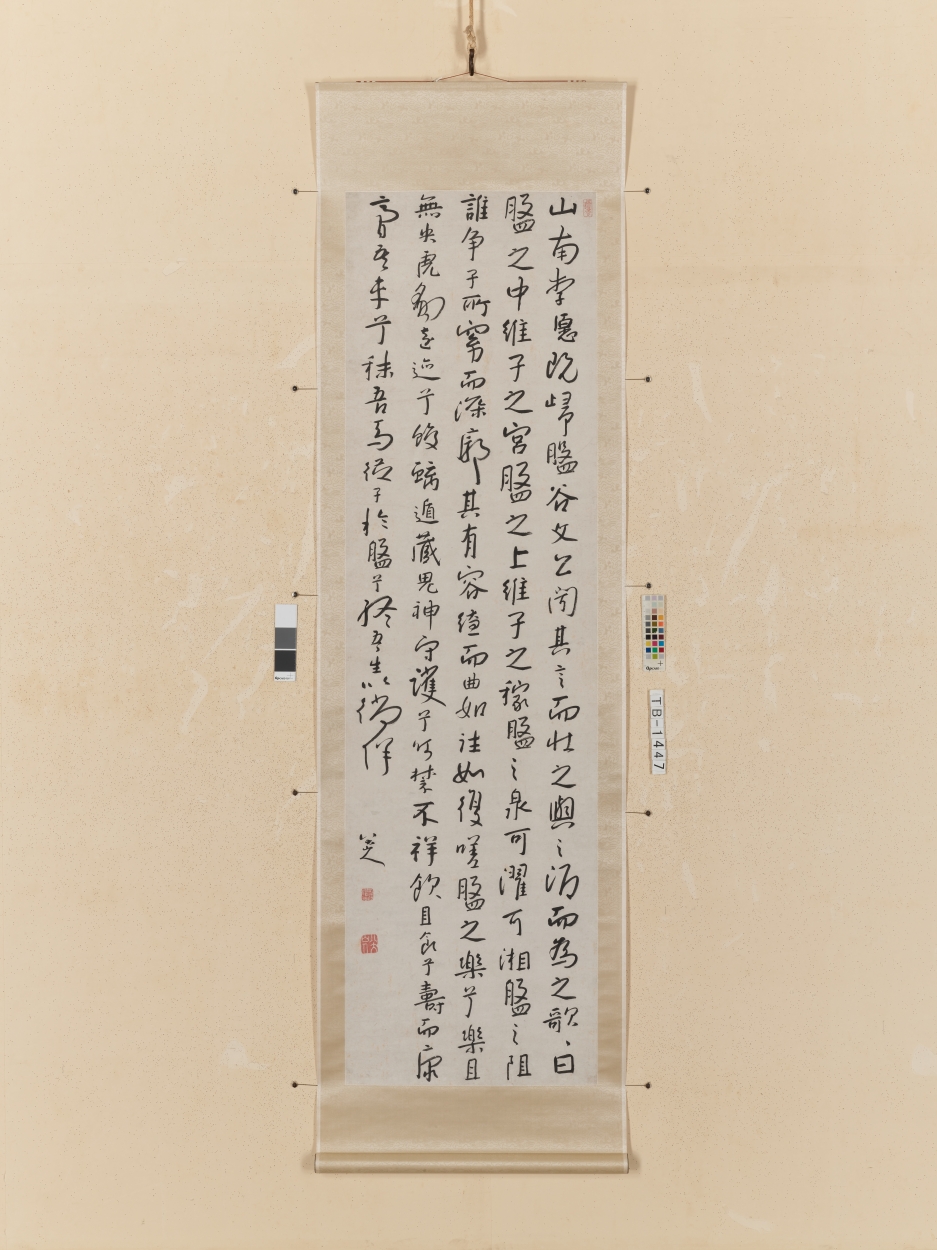 山南李愿既歸盤谷文公聞其言而壯之與之酒而為之歌、曰
盤之中維子之宮盤之上維子之稼盤之泉可濯可湘盤之阻
誰爭子所窈而深廓其有容繚而曲如往如復嗟盤之樂兮樂且
無央虎豹遠迹兮蛟螭遁藏鬼神守護兮呵禁不祥飲且食兮壽而康
膏吾車兮秣吾馬從子於盤兮終吾生以徜徉
八大
TB-1447